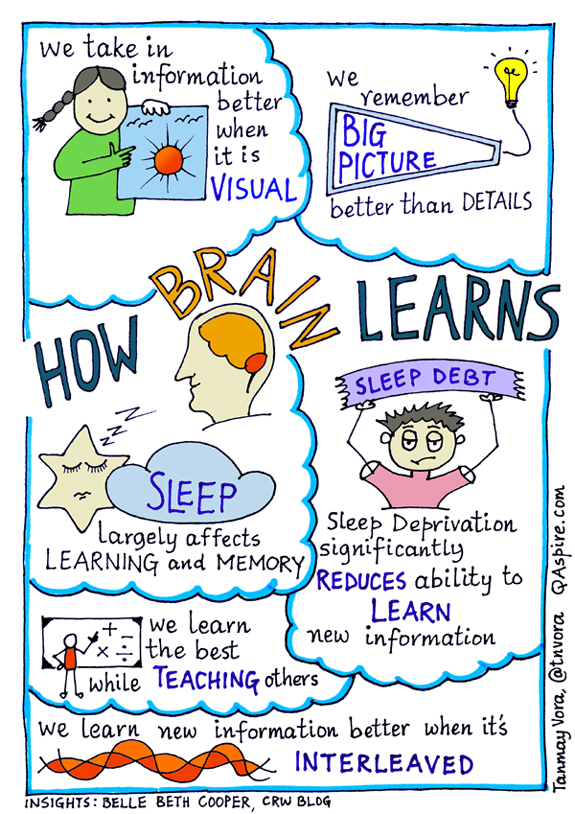 we take in
information
better
when
it is
VISUAL
we
remember
BIG
PICTURE
better than DETAILS
HOW
BRAIN
LEARNS
z z z z
SLEEP
largely affects
LEARNING and MEMORY
SLEEP DEBT
Sleep Deprivation
significantly
REDUCES ability to
LEARN
new information
+ -
× ÷
we learn
the best
while TEACHING others
we learn new information better when it's
INTERLEAVED
INSIGHTS: BELLE BETH COOPER, CRW BLOG
Tanmay Vora, @tnvora QAspire.com